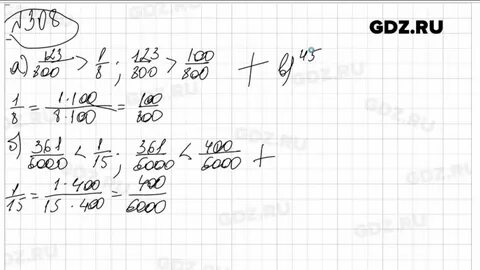 №308
GDZ.RU
а) 123/800 > 1/8 ; 123/800 > 100/800 + в) 45
1/8 = 1·100/8·100 = 100/800
б) 361/6000 < 1/15 ; 361/6000 < 400/6000 +
1/15 = 1·400/15·400 = 400/6000